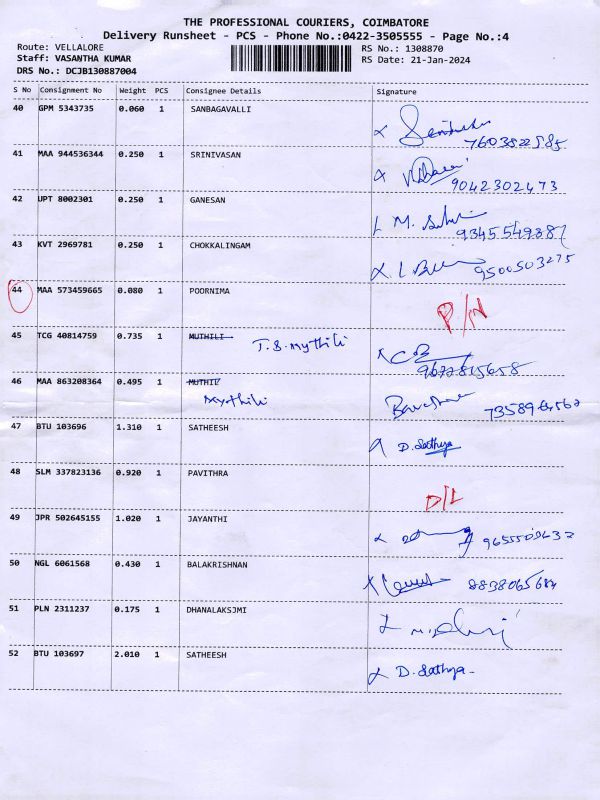 THE PROFESSIONAL COURIERS, COIMBATORE
Delivery Runsheet - PCS - Phone No.:0422-3505555 - Page No.:4
Route: VELLALORE RS No.: 1308870
Staff: VASANTHA KUMAR RS Date: 21-Jan-2024
DRS No.: DCJB130887004
S No Consignment No Weight PCS Consignee Details Signature
40 GPM 5343735 0.060 1 SANBAGAVALLI
41 MAA 944536344 0.250 1 SRINIVASAN
9042302473
42 UPT 8002301 0.250 1 GANESAN
9345549387
43 KVT 2969781 0.250 1 CHOKKALINGAM
9500503275
44 MAA 573459665 0.080 1 POORNIMA
P/N
45 TCG 40814759 0.735 1 MUTHILI T.S.mythili
46 MAA 863208364 0.495 1 MUTHIL
Mythili
47 BTU 103696 1.310 1 SATHEESH
D. Sathya
48 SLM 337823136 0.920 1 PAVITHRA
D/L
49 JPR 502645155 1.020 1 JAYANTHI
50 NGL 6061568 0.430 1 BALAKRISHNAN
8838065684
51 PLN 2311237 0.175 1 DHANALAKSJMI
52 BTU 103697 2.010 1 SATHEESH
D. Sathya